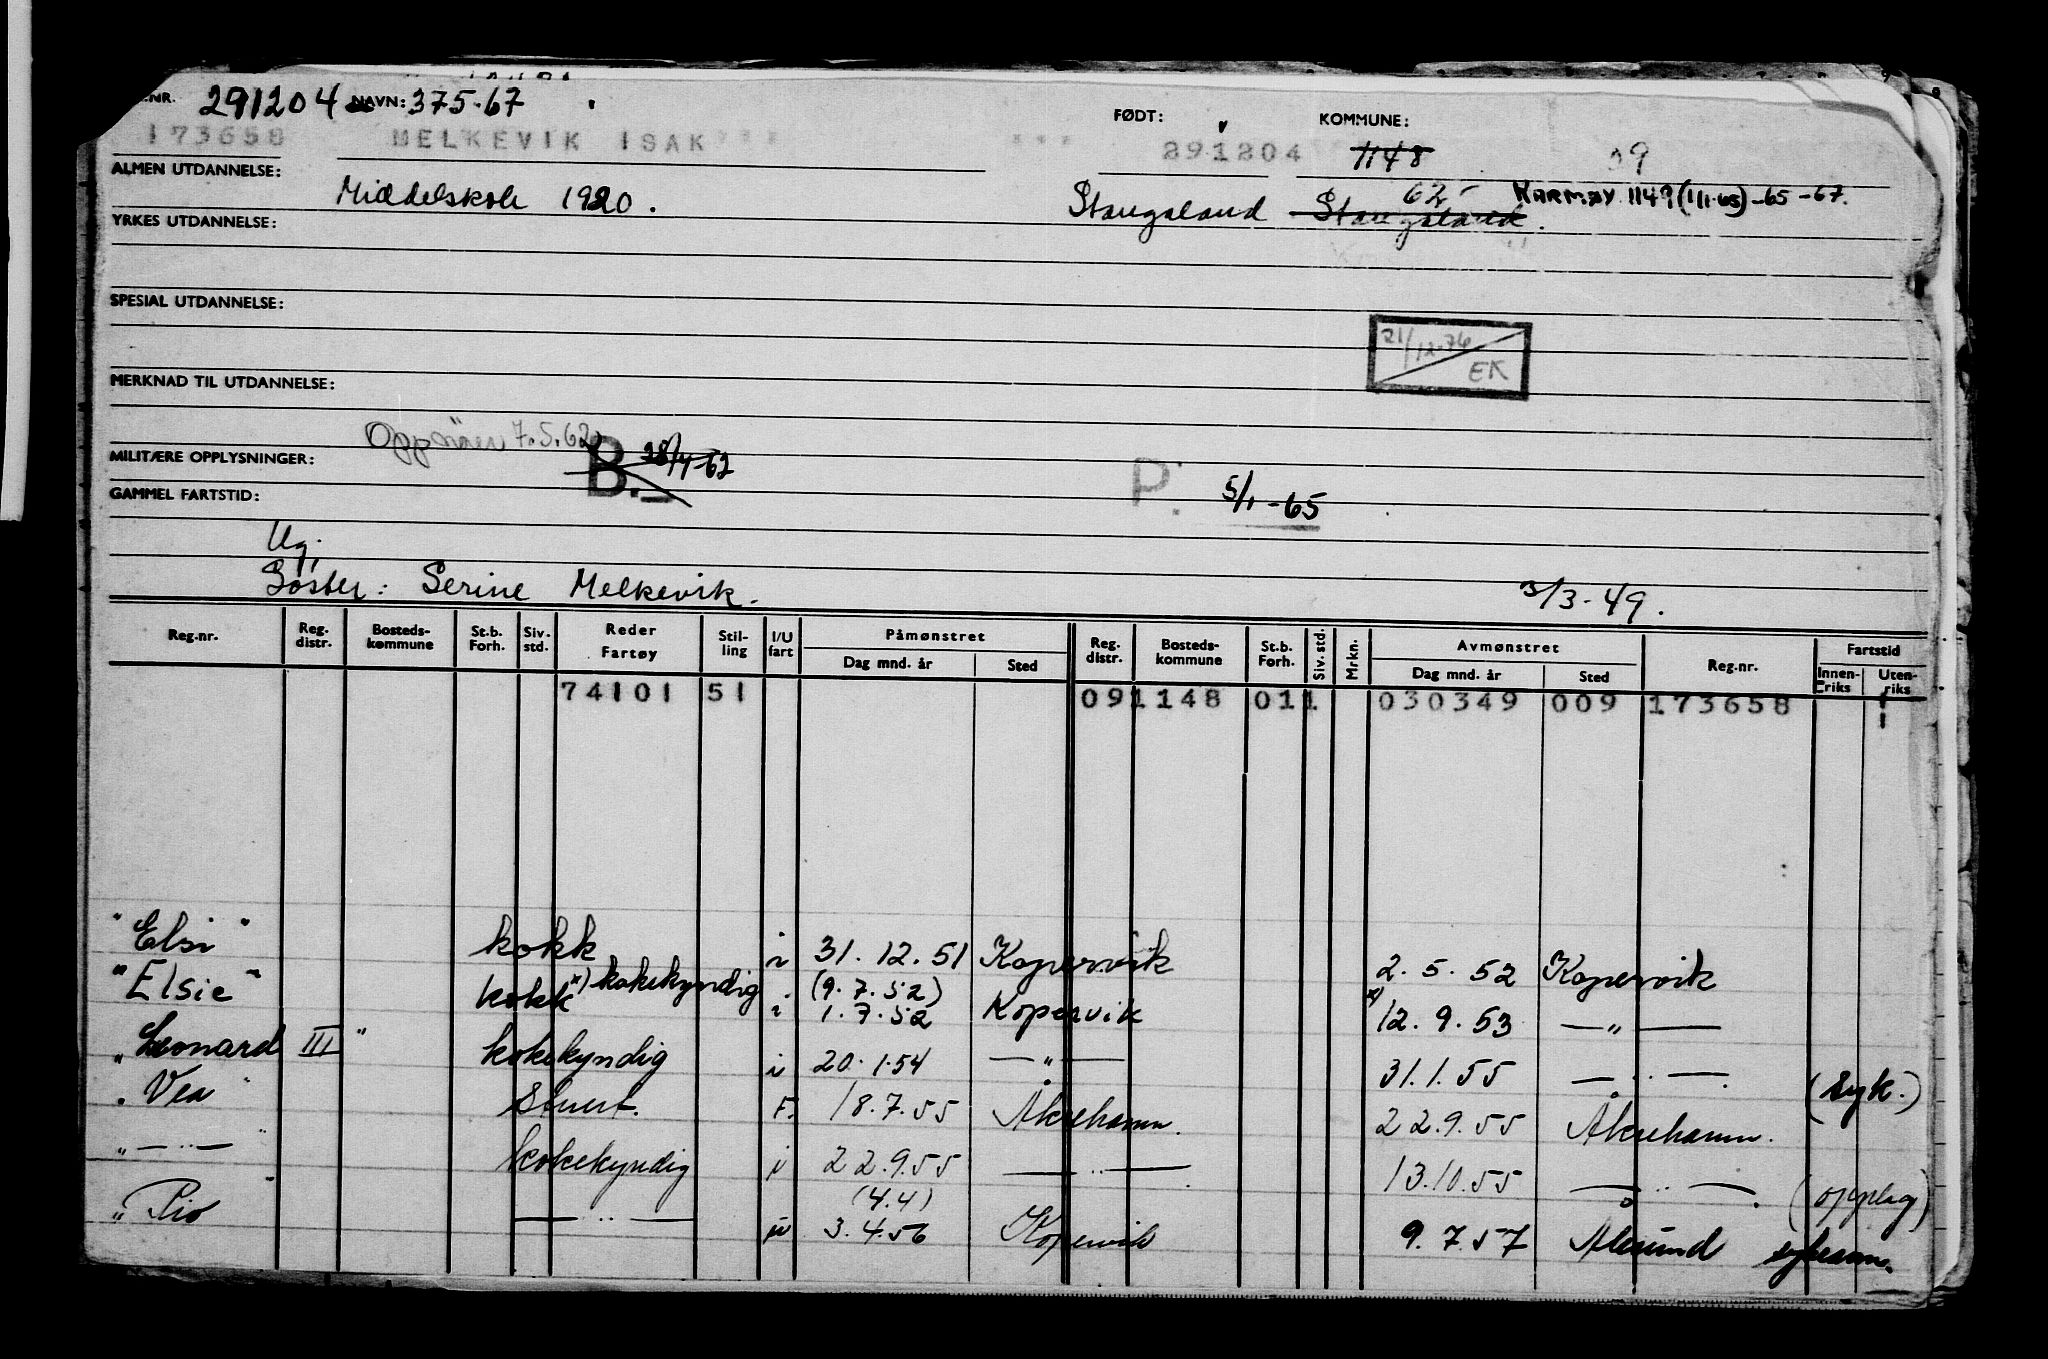 .NR. 291204 NAVN: 375-67 FØDT: KOMMUNE:
173658 MELKEVIK ISAK *** *** 291204 1148 09
ALMEN UTDANNELSE: Middelskole 1920. Stangaland Stangaland. 62- KARMØY 1149 (1/1-65) -65 -67.
YRKES UTDANNELSE:
SPESIAL UTDANNELSE:
21/12-76 EK
MERKNAD TIL UTDANNELSE:
7.5.62
MILITÆRE OPPLYSNINGER: B. 28/4-62 P.
GAMMEL FARTSTID: 5/1-65
Ug.
Søster: Serine Melkevik. 3/3-49.
Reg.nr. Reg. distr. Bosteds-kommune St.b. Forh. Siv. std. Reder Fartøy Stil-ling I/U fart Påmønstret Dag mnd. år Sted Reg. distr. Bosteds-kommune St.b. Forh. Siv. std. Mrkn. Avmønstret Dag mnd. år Sted Reg.nr. Fartstid Innen-riks Uten-riks
74101 51 091148 011 030349 009 173658
"Elsi" kokk i 31.12.51 Kopervik 2.5.52 Kopervik
"Elsie" kokk x) kokekyndig i (9.7.52) 1.7.52 Kopervik x) 12.9.53 —"—
"Leonard III" kokekyndig i 20.1.54 —"— 31.1.55 —"—. (syk.)
"Vea" Stuert. F. 18.7.55 Åkrehamn. 22.9.55 Åkrehamn.
"—"—" kokekyndig i 22.9.55 —"—. 13.10.55 —"—. (opplag)
"Pio" —"— (4.4) 3.4.56 Kopervik 9.7.57 Ålesund